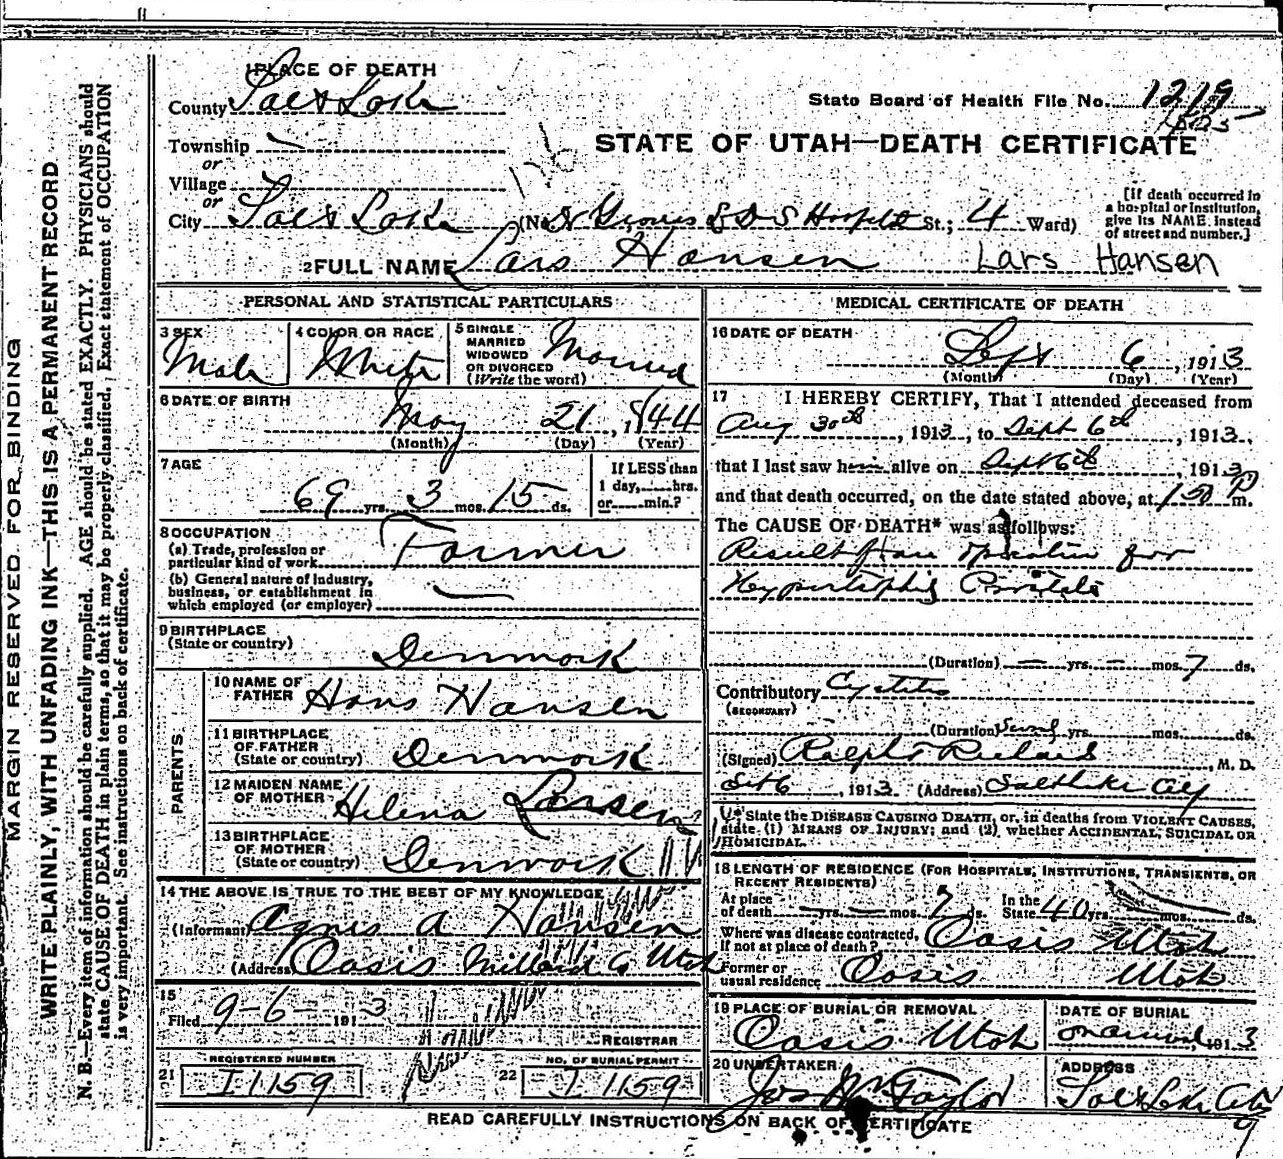 MARGIN RESERVED FOR BINDING
WRITE PLAINLY, WITH UNFADING INK—THIS IS A PERMANENT RECORD
N. B.—Every item of information should be carefully supplied. AGE should be stated EXACTLY. PHYSICIANS should
state CAUSE OF DEATH in plain terms, so that it may be properly classified. Exact statement of OCCUPATION
is very important. See instructions on back of certificate.
1 PLACE OF DEATH
County Salt Lake
State Board of Health File No. 1219
Township —
or
STATE OF UTAH—DEATH CERTIFICATE
Village
or
City Salt Lake (No. Dr Groves L D S Hospital St.; 4 Ward)
[If death occurred in
a hospital or institution,
give its NAME instead
of street and number.]
2 FULL NAME Lars Hansen Lars Hansen
PERSONAL AND STATISTICAL PARTICULARS
3 SEX Male
4 COLOR OR RACE White
5 SINGLE
MARRIED
WIDOWED
OR DIVORCED
(Write the word)
Married
6 DATE OF BIRTH
May 21, 1844
(Month) (Day) (Year)
7 AGE
69 yrs. 3 mos. 15 ds.
If LESS than
1 day, hrs.
or min.?
8 OCCUPATION
(a) Trade, profession or
particular kind of work Farmer
(b) General nature of industry,
business, or establishment in
which employed (or employer) —
9 BIRTHPLACE
(State or country) Denmark
PARENTS
10 NAME OF
FATHER Hans Hansen
11 BIRTHPLACE
OF FATHER
(State or country) Denmark
12 MAIDEN NAME
OF MOTHER Helena Larsen
13 BIRTHPLACE
OF MOTHER
(State or country) Denmark
14 THE ABOVE IS TRUE TO THE BEST OF MY KNOWLEDGE
(Informant) Agnes A Hansen
(Address) Oasis Millard Co Utah
15
Filed 9-6- 1913
REGISTRAR
REGISTERED NUMBER
21 I1159
NO. OF BURIAL PERMIT
22 I 1159
MEDICAL CERTIFICATE OF DEATH
16 DATE OF DEATH
Sept 6, 1913
(Month) (Day) (Year)
17 I HEREBY CERTIFY, That I attended deceased from
Aug 30th, 1913, to Sept 6th, 1913,
that I last saw h alive on Sept 6th, 1913
and that death occurred, on the date stated above, at 1.50 P m.
The CAUSE OF DEATH* was as follows:
Result of an operation for
(Duration) — yrs. — mos. 7 ds.
Contributory Cystitis
(SECONDARY)
(Duration) yrs. mos. ds.
(Signed) Ralph Richards, M. D.
Sept 6, 1913 (Address) Salt Lake City
* State the DISEASE CAUSING DEATH, or, in deaths from VIOLENT CAUSES,
state (1) MEANS OF INJURY; and (2) whether ACCIDENTAL, SUICIDAL OR
HOMICIDAL.
18 LENGTH OF RESIDENCE (FOR HOSPITALS, INSTITUTIONS, TRANSIENTS, OR
RECENT RESIDENTS)
At place
of death — yrs. — mos. 7 ds.
In the
State 40 yrs. mos. ds.
Where was disease contracted,
if not at place of death? Oasis Utah
Former or
usual residence Oasis Utah
19 PLACE OF BURIAL OR REMOVAL
Oasis Utah
DATE OF BURIAL
1913
20 UNDERTAKER
Jos Wm Taylor
ADDRESS
Salt Lake City
READ CAREFULLY INSTRUCTIONS ON BACK OF CERTIFICATE